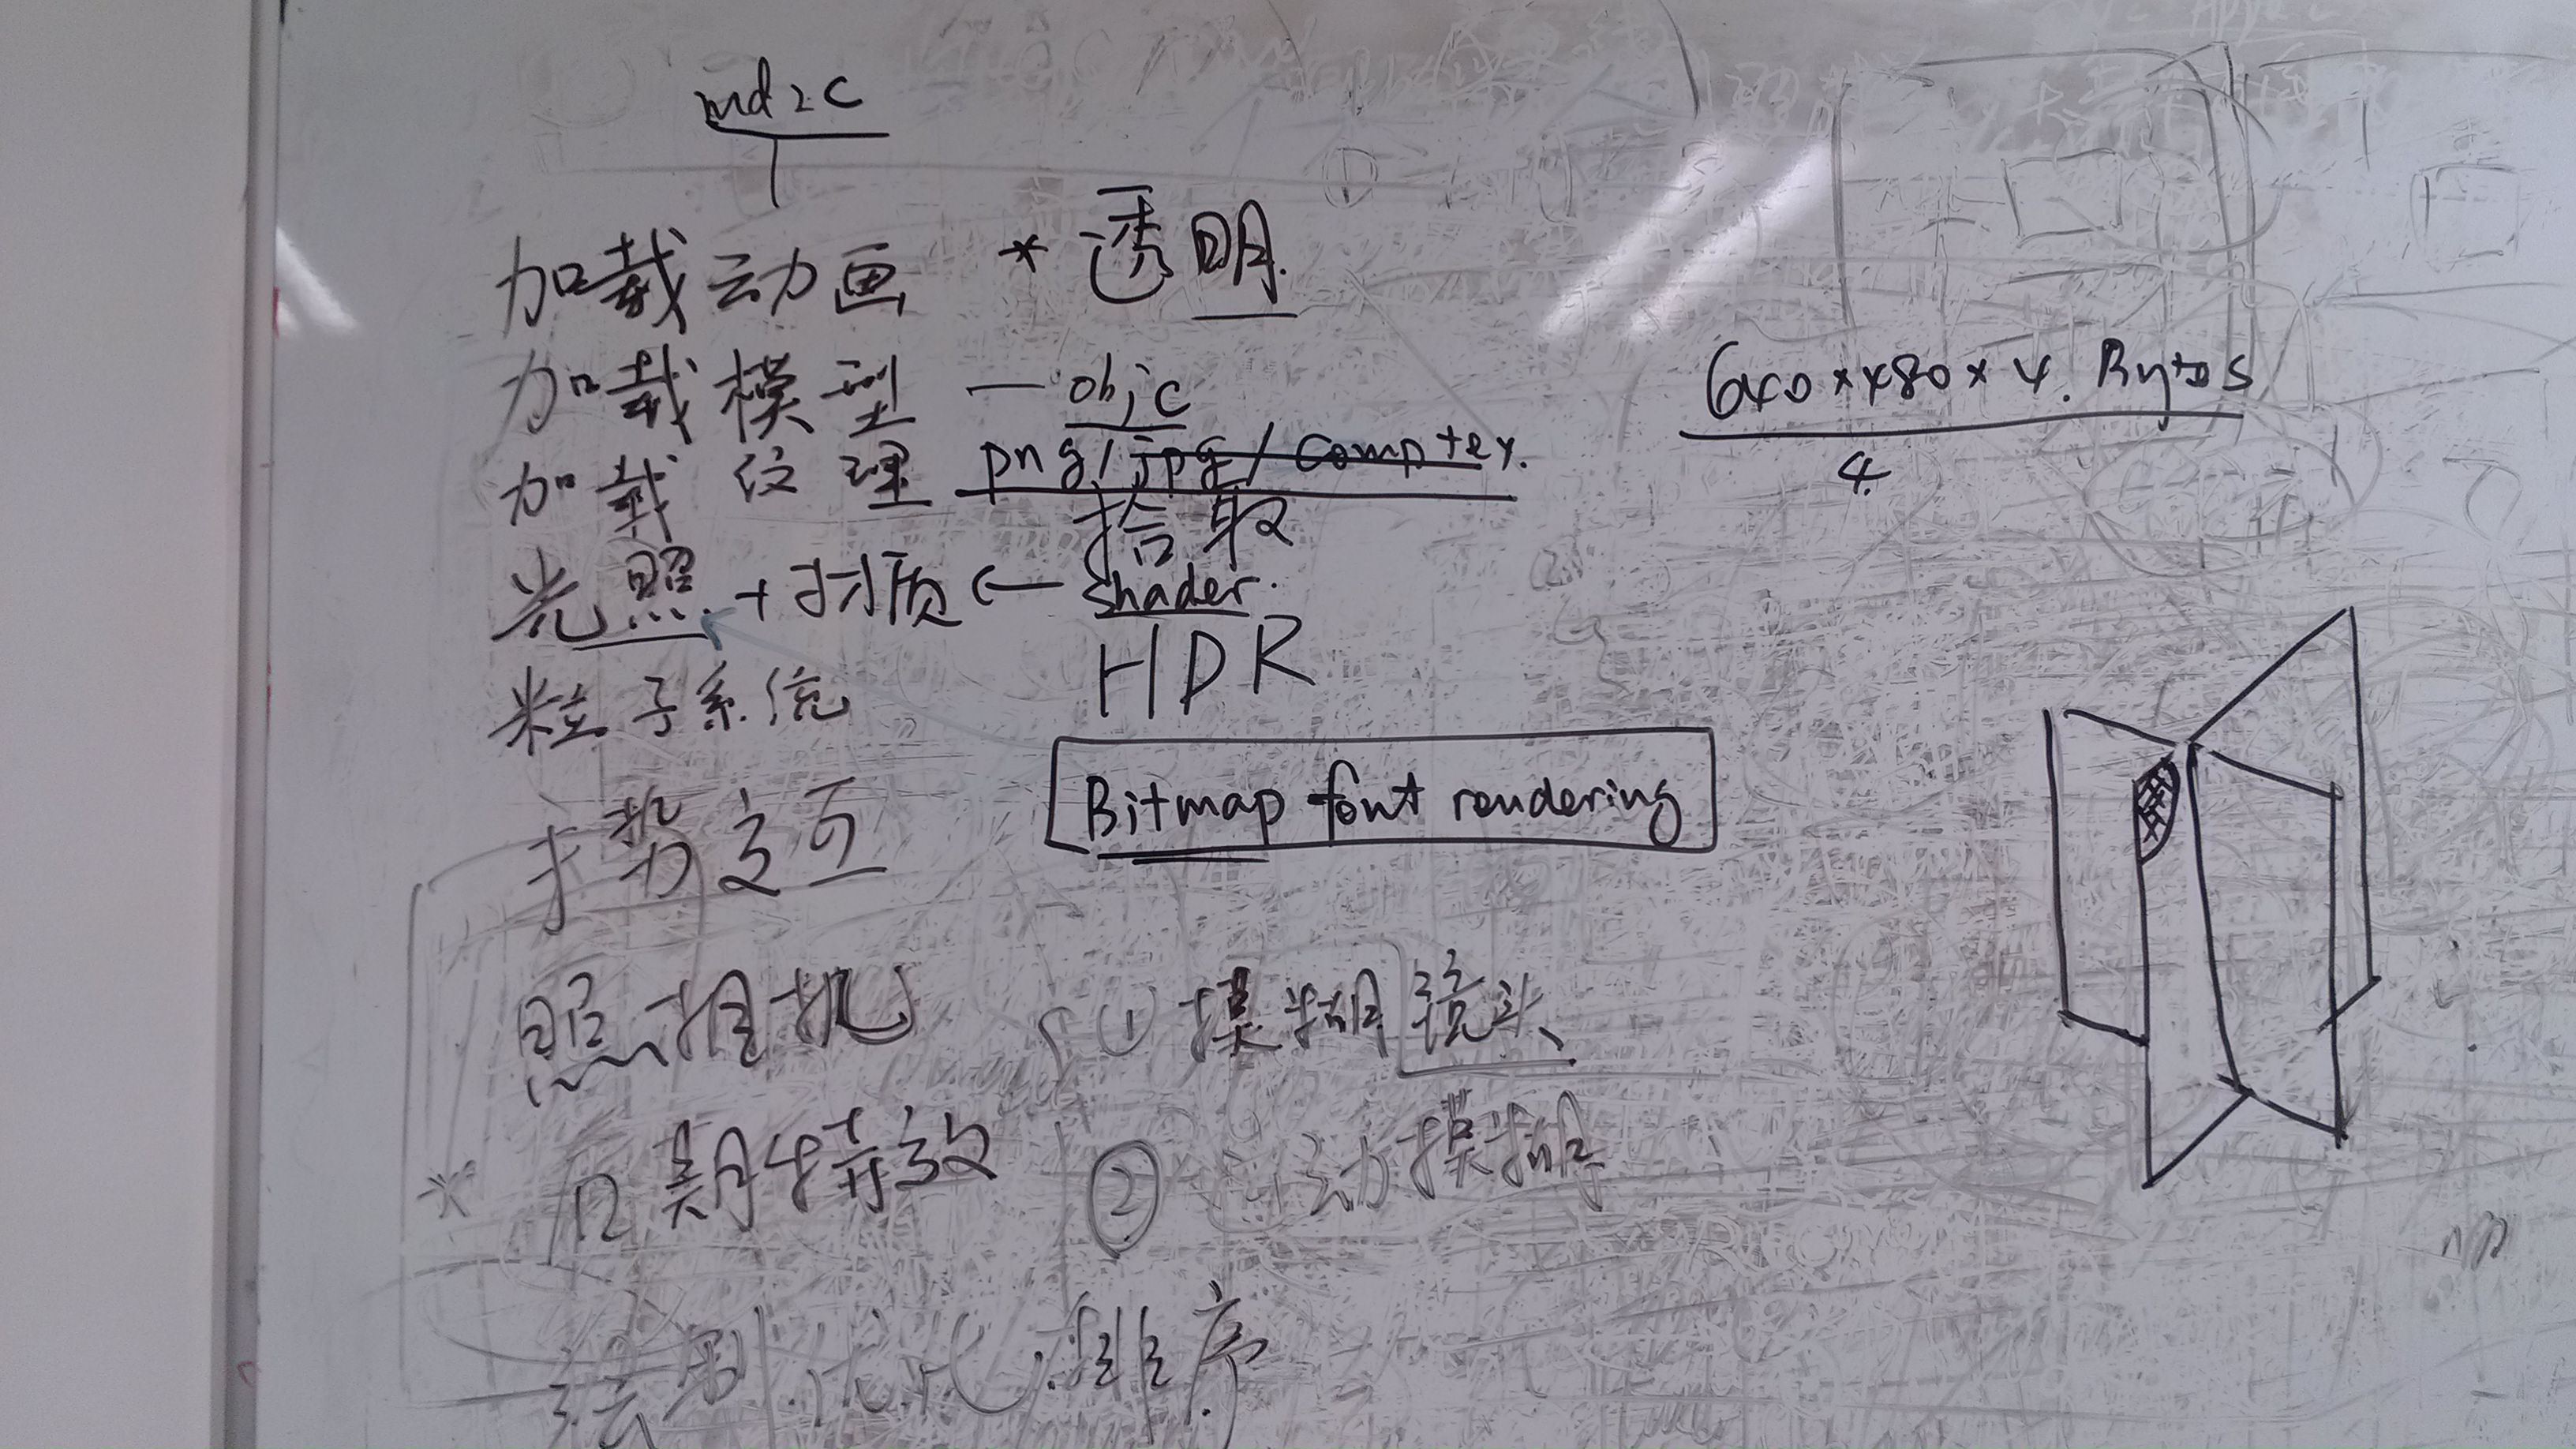 md2c
加载动画 * 透明
加载模型 — objc
加载纹理 png/jpg/comptex.
拾取
光照 + 材质 ← shader.
HDR
粒子系统
Bitmap font rendering
手势交互
照相机 ① 模糊镜头
* 后期特效 ② 运动模糊
绘制优化.排序
640×480×4. Bytes
4